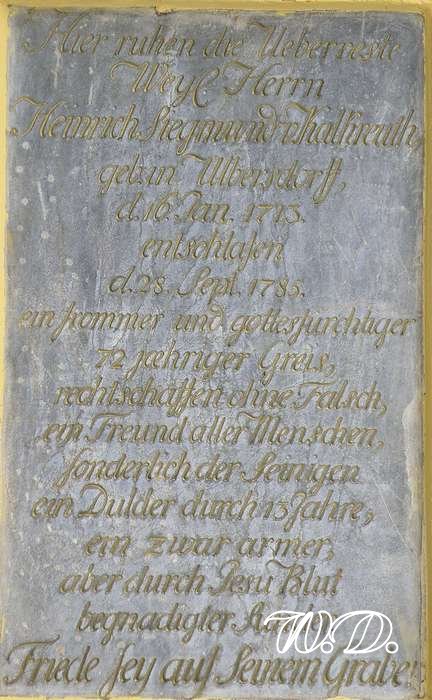 Hier ruhen die Ueberreste
Weyl. Herrn
Heinrich Siegmund v. Kalkreuth,
geb. in Ulbersdorff,
d. 16. Jan. 1713.
entschlafen
d. 28. Sept. 1785.
ein frommer und gottesfurchtiger
72 jaehriger Greis,
rechtschaffen ohne Falsch,
ein Freund aller Menschen,
sonderlich der Seinigen
ein Dulder durch 13 Jahre,
ein zwar armer,
aber durch Jesu Blut
begnadigter
W. D.
Friede sey auf Seinem Grabe!